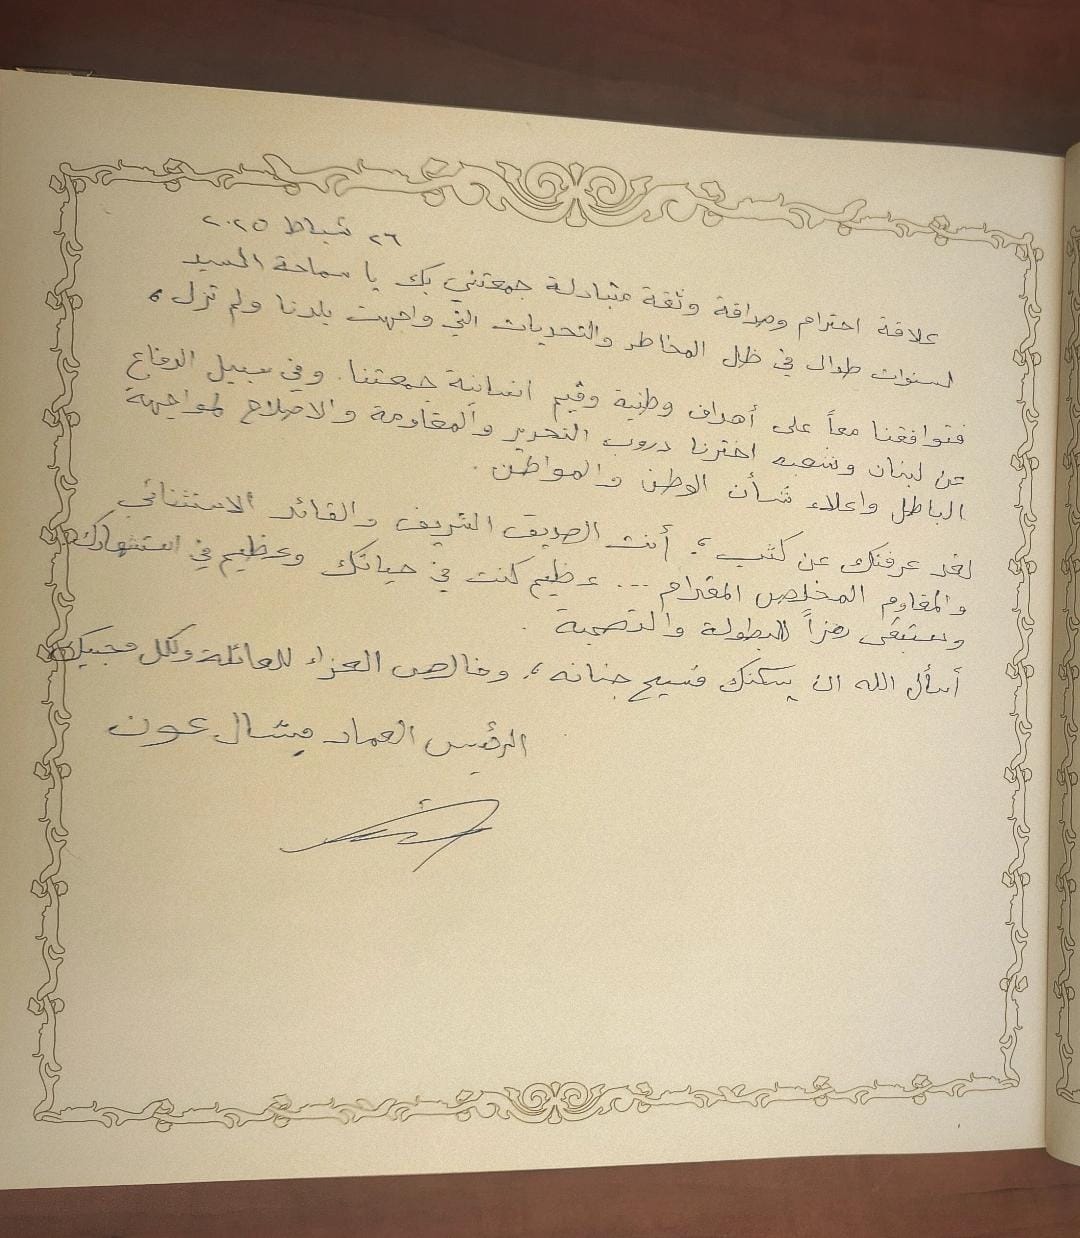 ٢٦ شباط ٢٠٢٥
علاقة احترام وصداقة وثقة متبادلة جمعتني بك يا سماحة السيد
لسنوات طوال في ظل المخاطر والتحديات التي واجهت بلدنا ولم تزل،
فتوافقنا معاً على أهداف وطنية وقيم انسانية جمعتنا. وفي سبيل الدفاع
عن لبنان وشعبه اخترنا دروب التحرير والمقاومة والاصلاح لمواجهة
الباطل واعلاء شأن الوطن والمواطن.
لقد عرفتك عن كثب، أنت الصديق الشريف والقائد الاستثنائي
والمقاوم المخلص المقدام ... عظيم كنت في حياتك وعظيم في استشهادك
وستبقى رمزاً للبطولة والتضحية.
أسأل الله ان يسكنك فسيح جنانه، وخالص العزاء للعائلة ولكل محبيك
الرئيس العماد ميشال عون